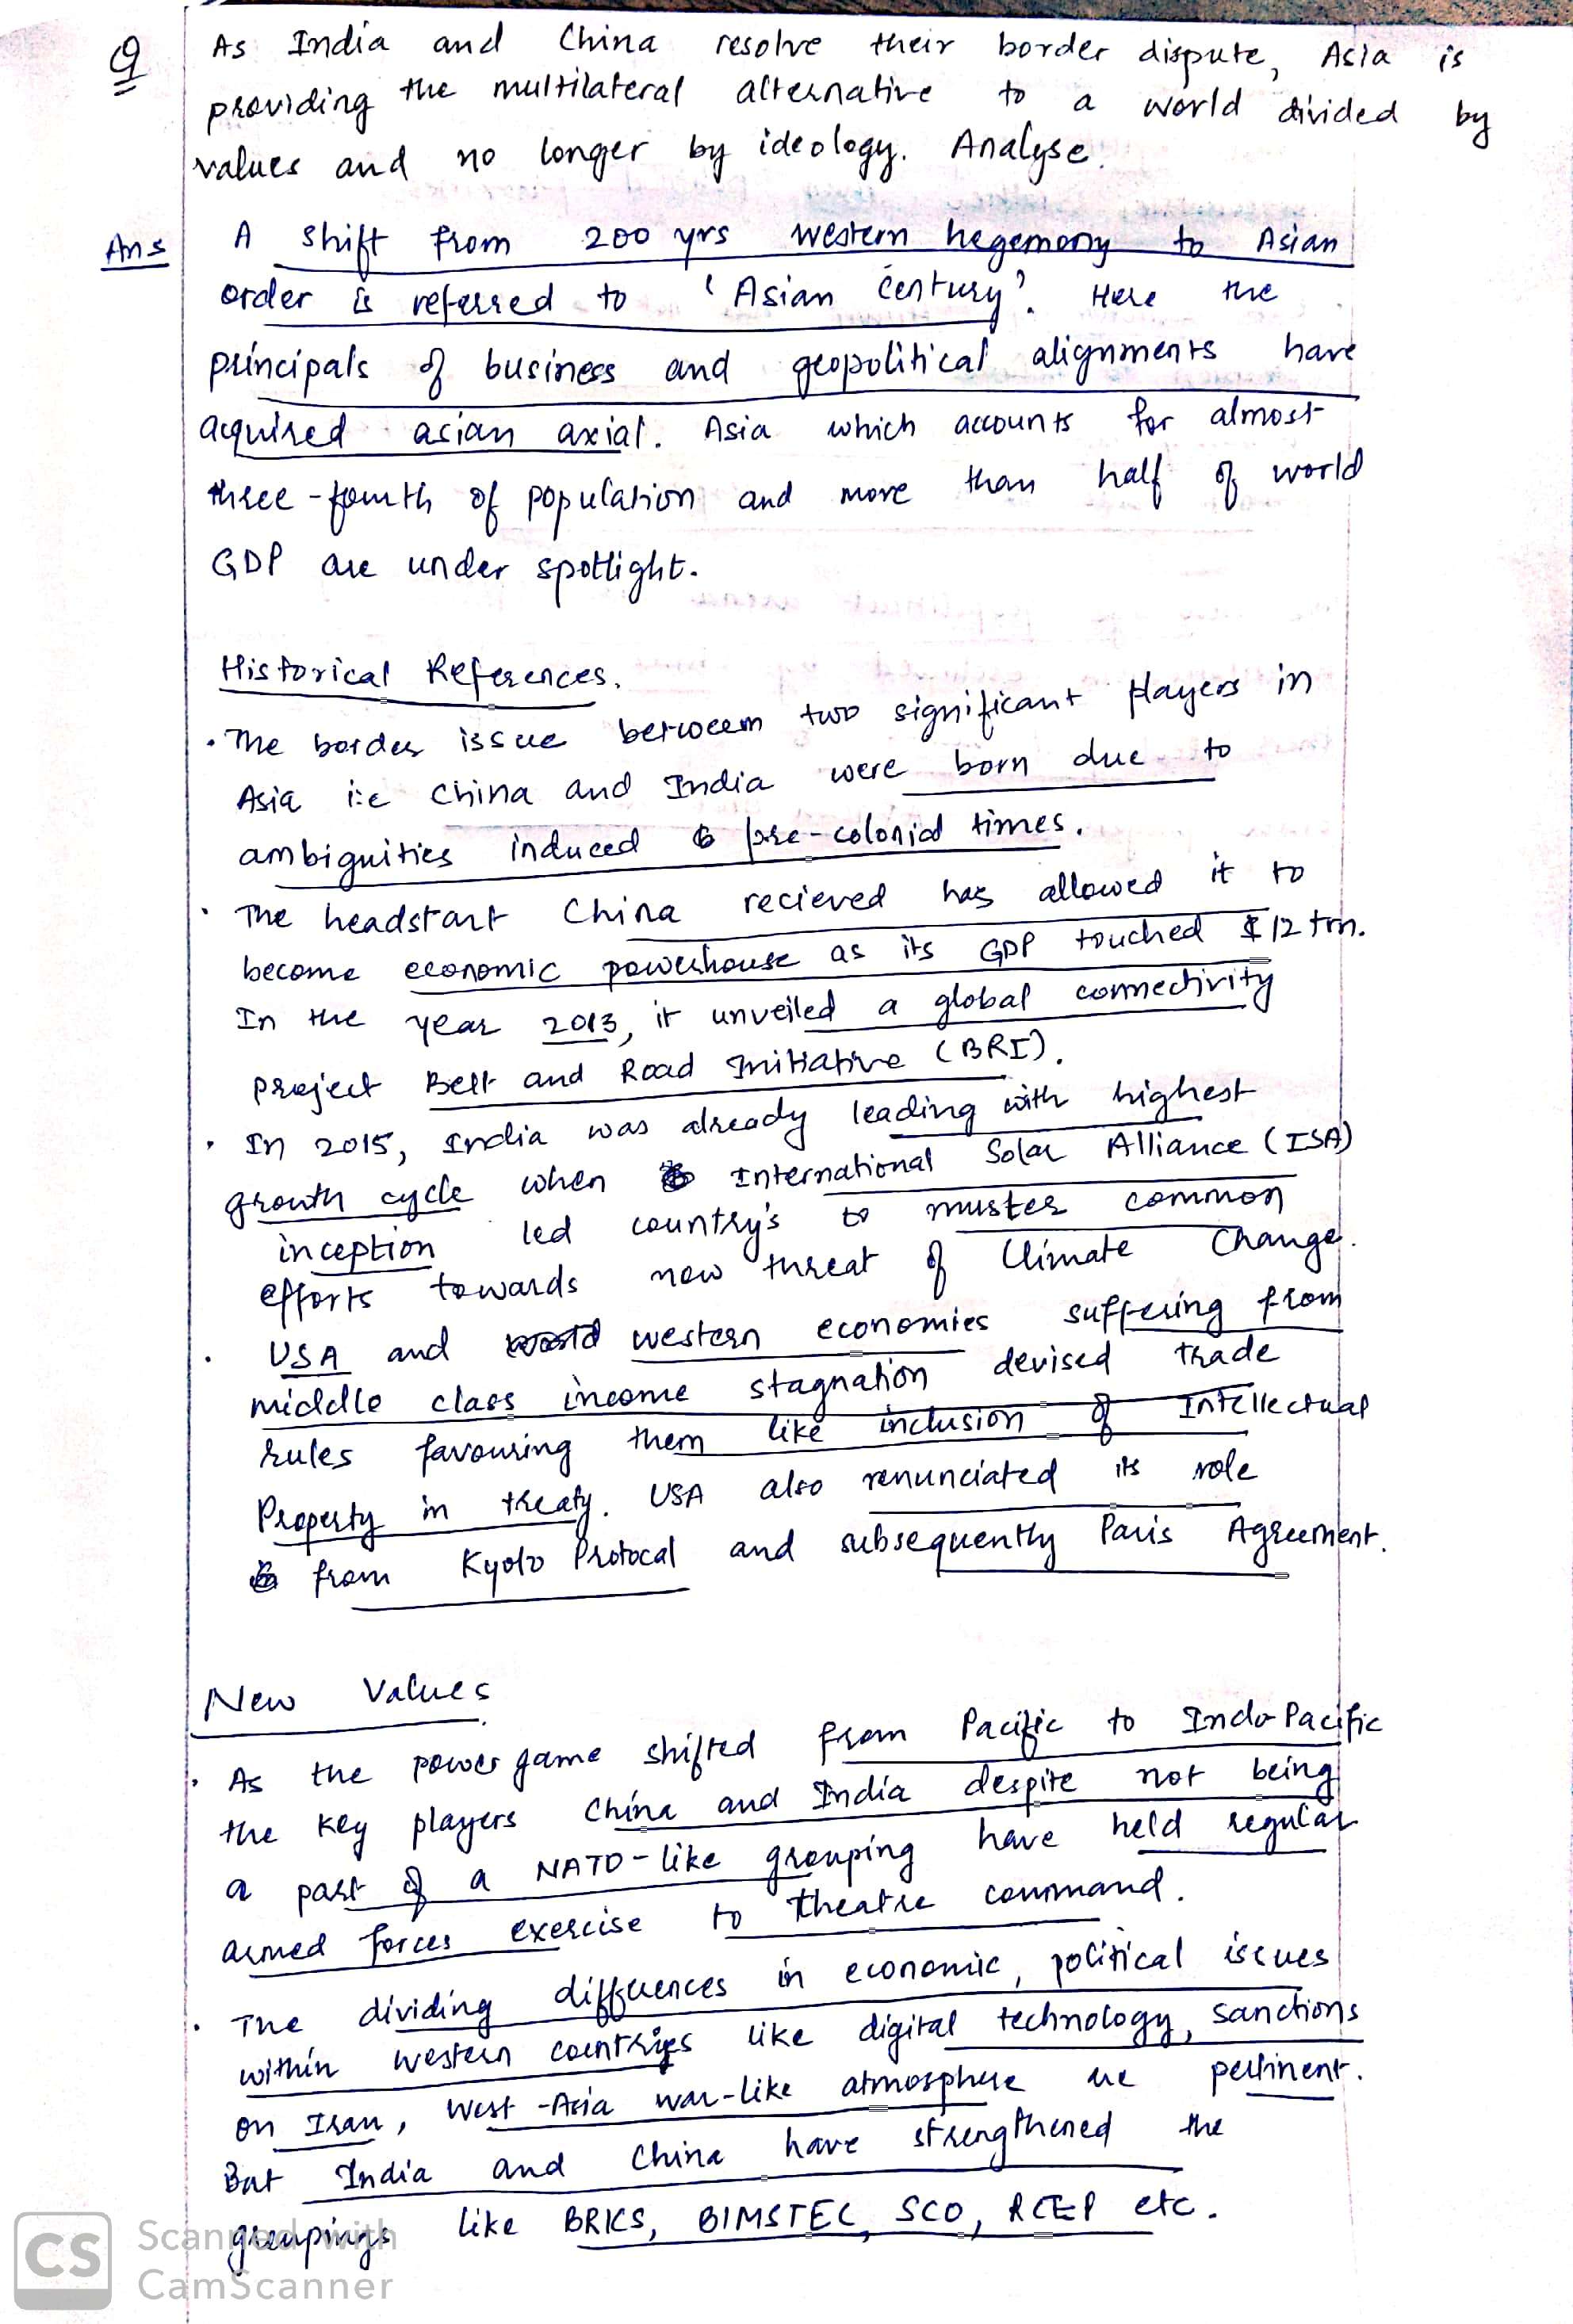 Q As India and China resolve their border dispute, Asia is
providing the multilateral alternative to a world divided by
values and no longer by ideology. Analyse.
Ans A shift from 200 yrs western hegemony to Asian
order is referred to 'Asian Century'. Here the
principals of business and geopolitical alignments have
acquired asian axial. Asia which accounts for almost
three-fourth of population and more than half of world
GDP are under spotlight.
Historical References.
• The border issue between two significant players in
Asia i.e China and India were born due to
ambiguities induced pre-colonial times.
• The headstart China recieved has allowed it to
become economic powerhouse as its GDP touched $12 trn.
In the year 2013, it unveiled a global connectivity
project Belt and Road Initiative (BRI).
• In 2015, India was already leading with highest
growth cycle when International Solar Alliance (ISA)
inception led country's to muster common
efforts towards new threat of Climate Change.
• USA and western economies suffering from
middle class income stagnation devised trade
rules favouring them like inclusion of Intellectual
Property in treaty. USA also renunciated its role
from Kyoto Protocal and subsequently Paris Agreement.
New Values
• As the power game shifted from Pacific to Indo Pacific
the key players China and India despite not being
a part of a NATO-like grouping have held regular
armed forces exercise to theatre command.
• The dividing differences in economic, political issues
within western countries like digital technology, sanctions
on Iran, West-Asia war-like atmosphere are pertinent.
But India and China have strengthened the
groupings like BRICS, BIMSTEC, SCO, RCEP etc.
CS Scanned with
CamScanner